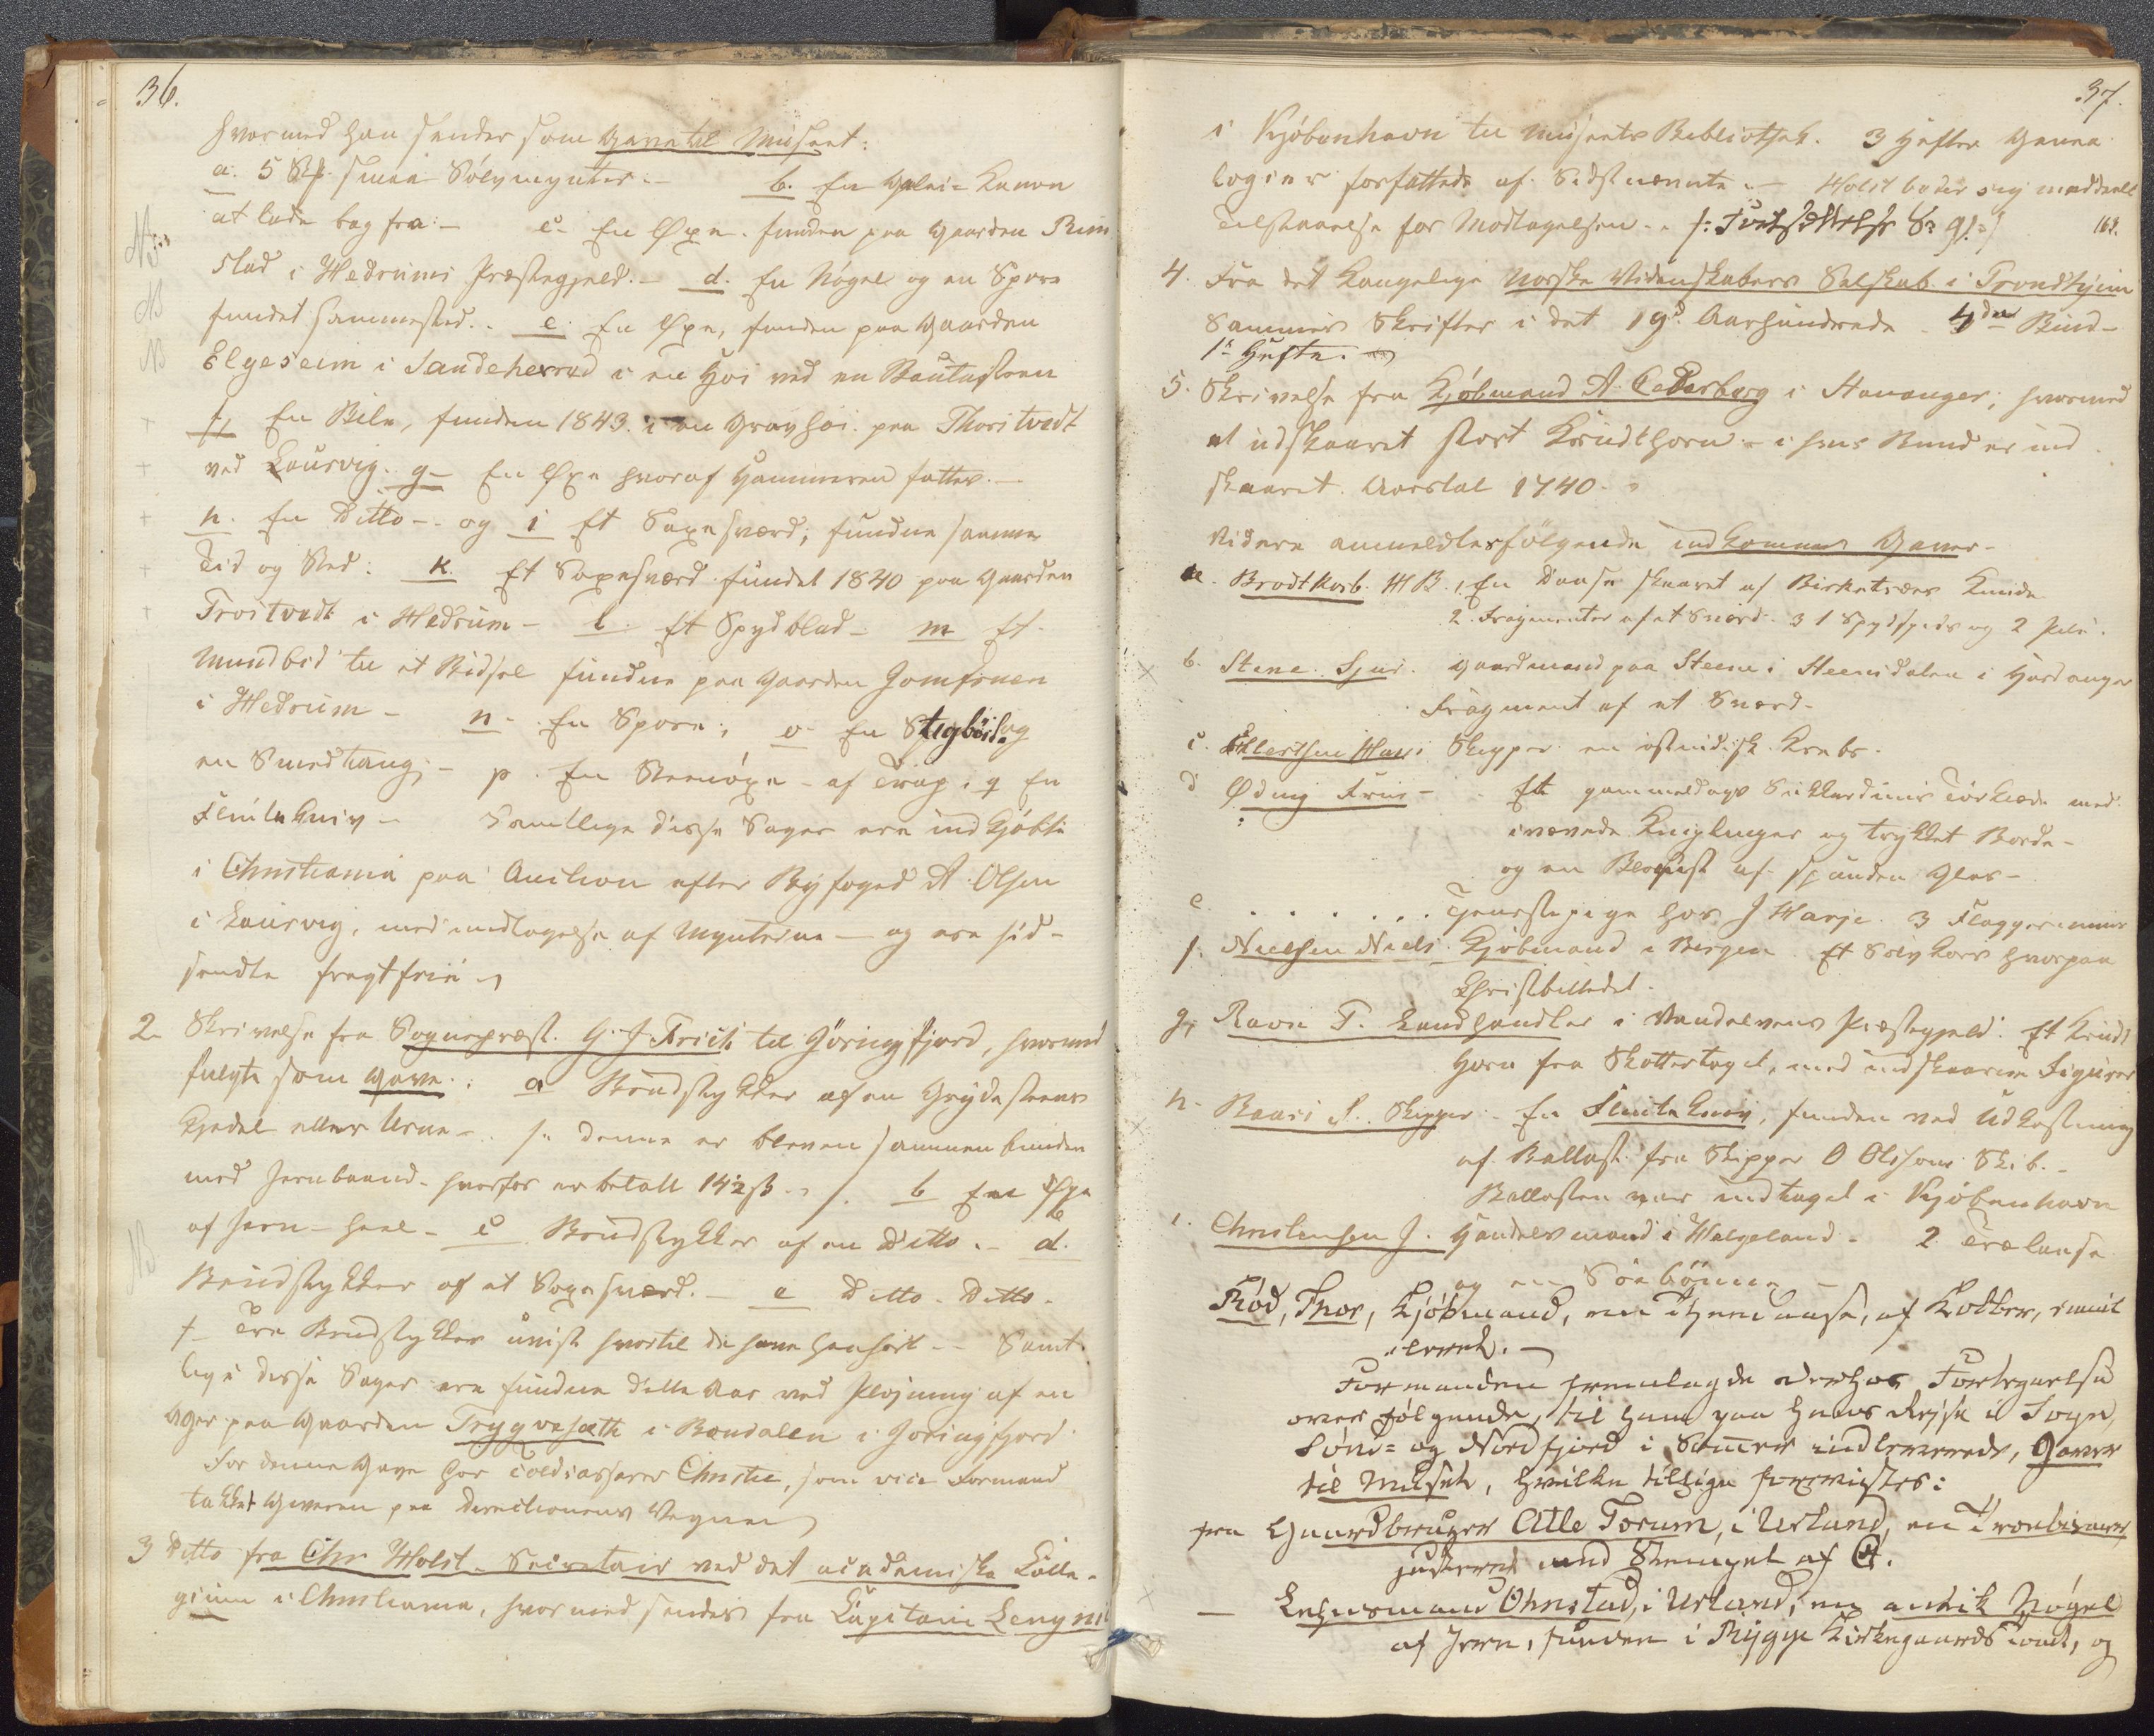 36.
hvormed han sender som Gave til Museet:
a. 5 Stk. smaa Sølvmynter. – b. En Glei- Kanon
at lade bag fra. – c. En Øxe. funden paa Gaarden Rim
stad i Hedrums Præstegjeld. – d. En Nøgel og en Spore
fundet sammested. – e. En Øxe, funden paa Gaarden
Elgeseim i Sandeherred i en Høi ved en Bautasteen
f, En Bile, funden 1843 i en Gravhøi paa Thoritvedt
ved Laurvig. g – En Øxe hvoraf Hammeren fattes. –
h. En Ditto – og i Et Saxesværd, fundne samme
Tid og Sted. k. Et Saxesværd fundet 1840 paa Gaarden
Troitvedt i Hedrum – l. Et Spydblad – m Et
Mundbid til et Bidsel fundne paa Gaarden Gomsrnen
i Hedrum – n. En Spore, o. En Stigbøil og
en Smedtang, – p. En Steenøxe – af Trap, q En
Flintekniv – Samtlige disse Sager ere indkjøbte
i Christiania paa Auction efter Byfoged A. Olsen
i Laurvig, med undtagelse af Mynterne – og ere hid-
sendte fragtfrie
2. Skrivelse fra Sognepræst G. J. Friis til Jøringfjord, hvormed
fulgte som Gave: a Brudstykker af en Grydesteens
Kjedel eller Urne – /: denne er bleven sammenbunden
med Jernbaand – hvorfor er betalt 142 ß – /. b En Øxe
af Jern – heel – c Brudstykker af en Ditto. – d.
Brudstykker af et Saxesværd. – e Ditto – Ditto –
f – Tre Brudstykker uvist hvortil de have henhørt – Samt-
lige disse Sager ere fundne dette Aar ved Pløjning af en
Ager paa Gaarden Trygvesæth i Bondalen i Jøringfjord.
For denne Gave har Toldcasserer Christie, som vice Formand
takket Giveren paa Directionens Vegne
3 Ditto fra Chr Holst – Secretair ved det academiske Colle-
gium i Christiania, hvormed sendes fra Capitain Lengni
NB
NB
NB
NB
37.
i Kjöbenhavn til Museets Bibliothek. 3 Hefter Genea
logier forfattede af Sidstnævnte. – Holst beder sig meddeelt
Tilstaaelse for Modtagelsen. –
163.
4. Fra det Kongelige Norske Videnskabers Selskab i Trondhjem
Sammes Skrifter i det 19de Aarhundrede 4der Bind –
1te Hefte.
5. Skrivelse fra Kjøbmand A. Cederberg i Stavanger, hvormed
et udskaaret stort Krudthorn – i hvis Bund er ind
skaaret Aarstal 1740.
Videre anmeldtes følgende indkomne Gaver –
a. Brodtkorb. H B. 1, En Daase skaaret af Birketræes Knude
2. Fragmenter af et Sværd. 3 1 Spydspids og 2 Pile.
b. Stene. Sjur. Gaardmand paa Steene i Steensdalen i Hardanger
Fragment af et Sværd –
c. Ellertsen Hans Skipper en ostindisk Krebs.
d Ødvig Friis – Et gammeldags Silkedunis Tørklæde med
ivævede Kniplinger og trykket Borde –
og en Blomst af spunden Glas –
e. . . . . . . . Tjenestepige hos J Harje. 3 Flaggermuus
f. Nielsen Niels Kjøbmand i Bergen. Et Sølvkors hvorpaa
Christbilledet.
g, Ravn T. Landhandler i Vandelvens Præstegjeld. Et Krudt
horn fra Skottertoget, med indskaarne Figurer
h. Baars S. Skipper – En Flintekniv, funden ved Udkastning
af Ballast fra Skipper O Olsens Skib. –
Ballasten var indtaget i Kjøbenhavn
i. Christensen J. Handelsmand i Helgeland. 2 Trælanse
og en Söe bönne –
Röd, Thor, Kjöbmand, en Theedaase, af Kobber, email
leret. –
Formanden fremlagde derhos Fortegnelse
over følgende, til ham paa hans Rejse i Sogn,
Sönd- og Nordfjord i Sommer indleverede, Gaver
til Museet, hvilke tillige forevistes:
fra Gaardbruger Atle Torum, i Urland, en Træbismer,
justeret med Stempel af C4.
– Lehnsmand Ohnstad, i Urland, en antik Nögel
af Jern, funden i Rygge Kirkegaards Tomt, og